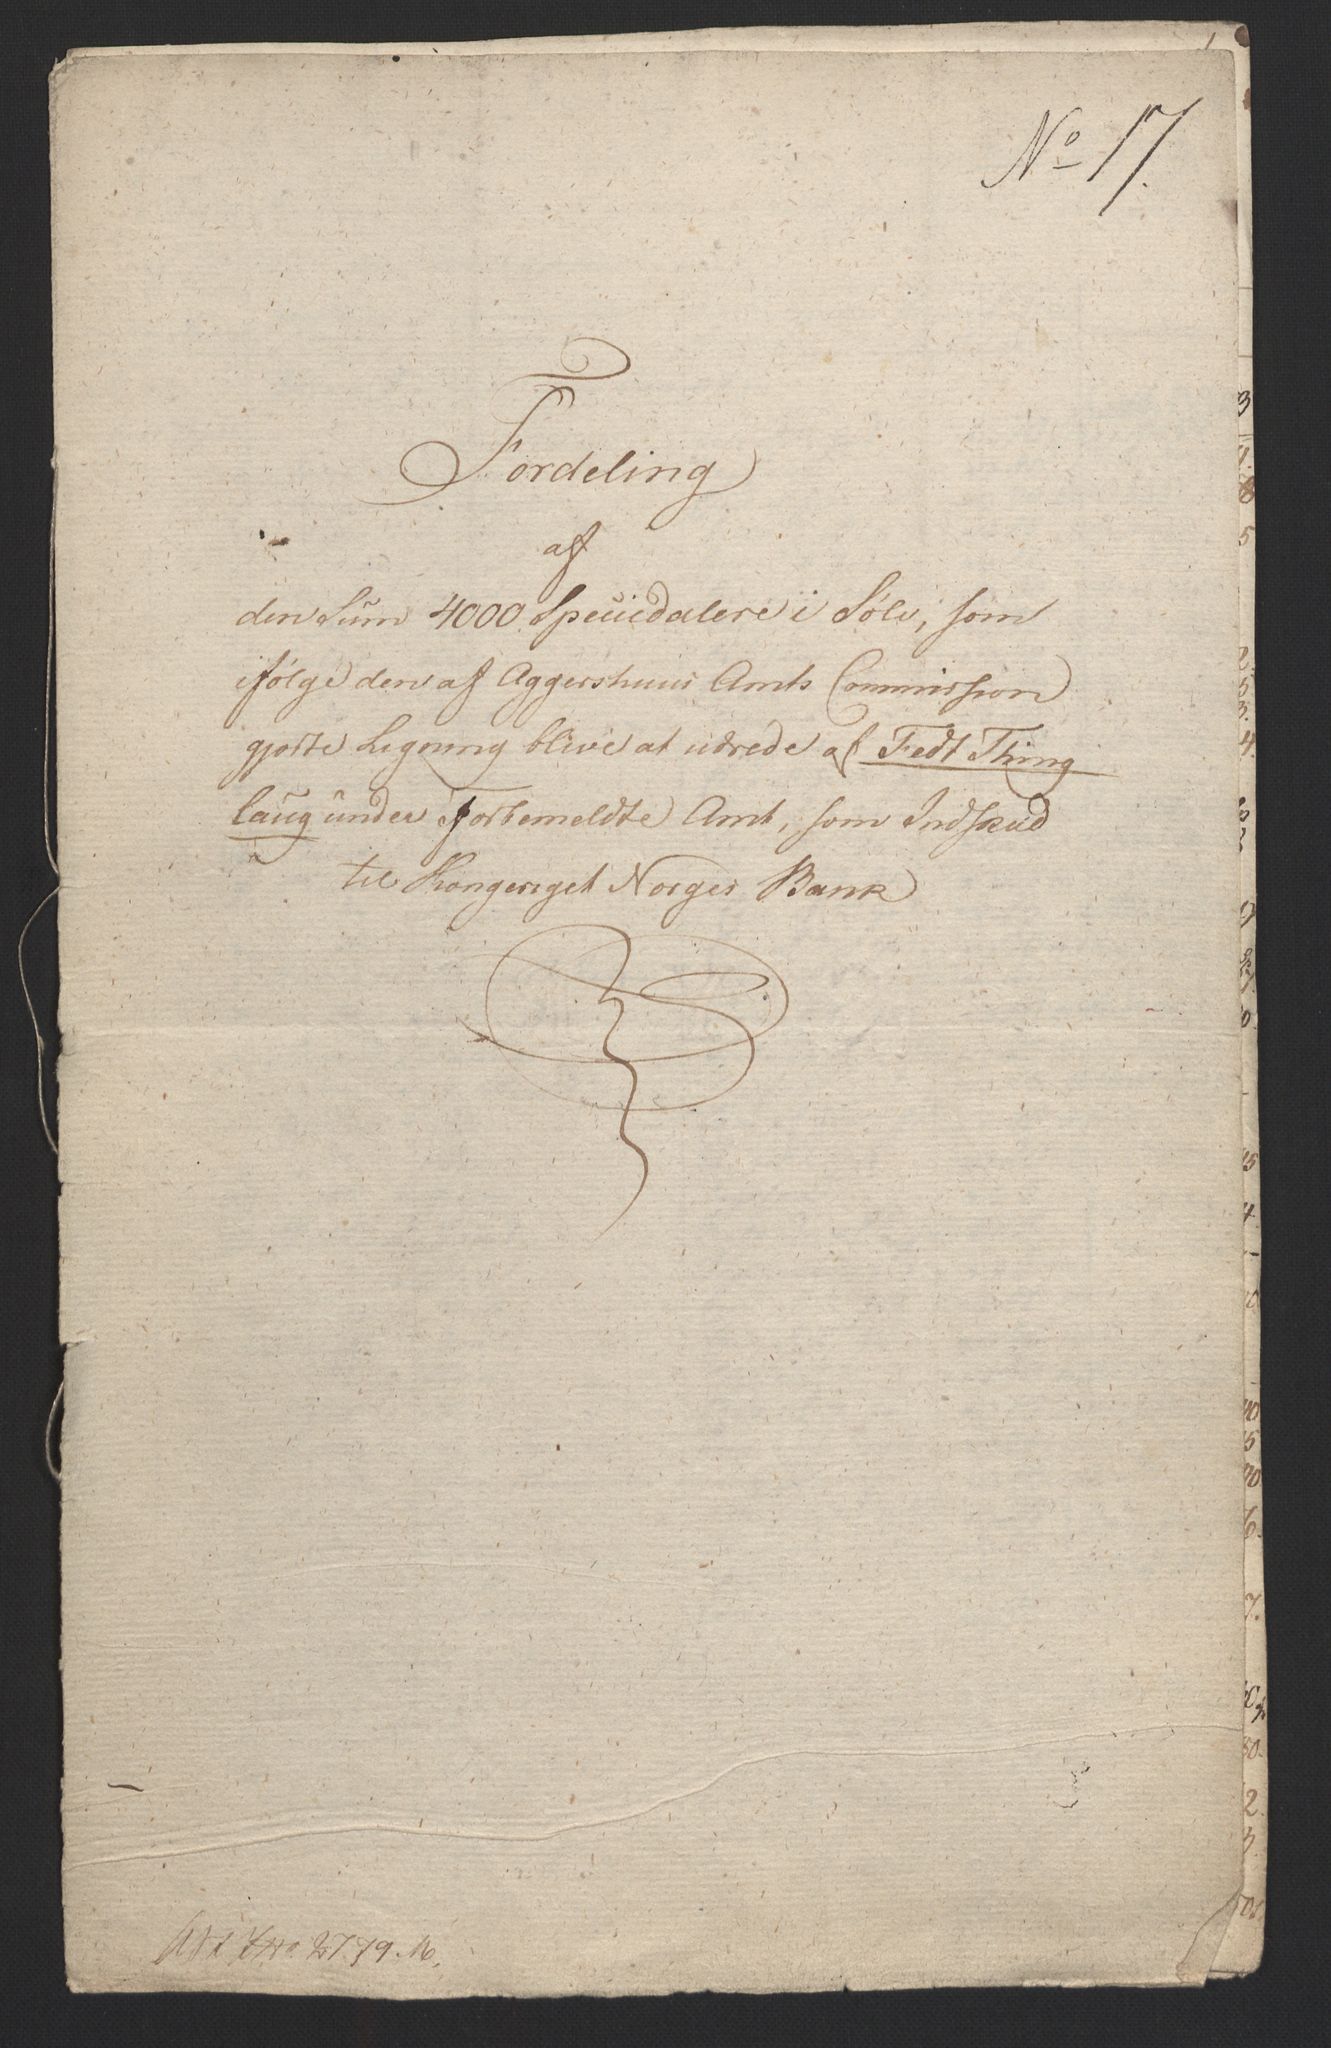 No 17.
Fordeling
af
den Sum 4000 Speciedalere i Sølv, som
ifølge den af Aggershuus Amts Commission
gjorte Ligning blive at udrede af Fedt Thing
laug under forbemeldte Amt, som Indskud
til Kongeriget Norges Bank
2779.